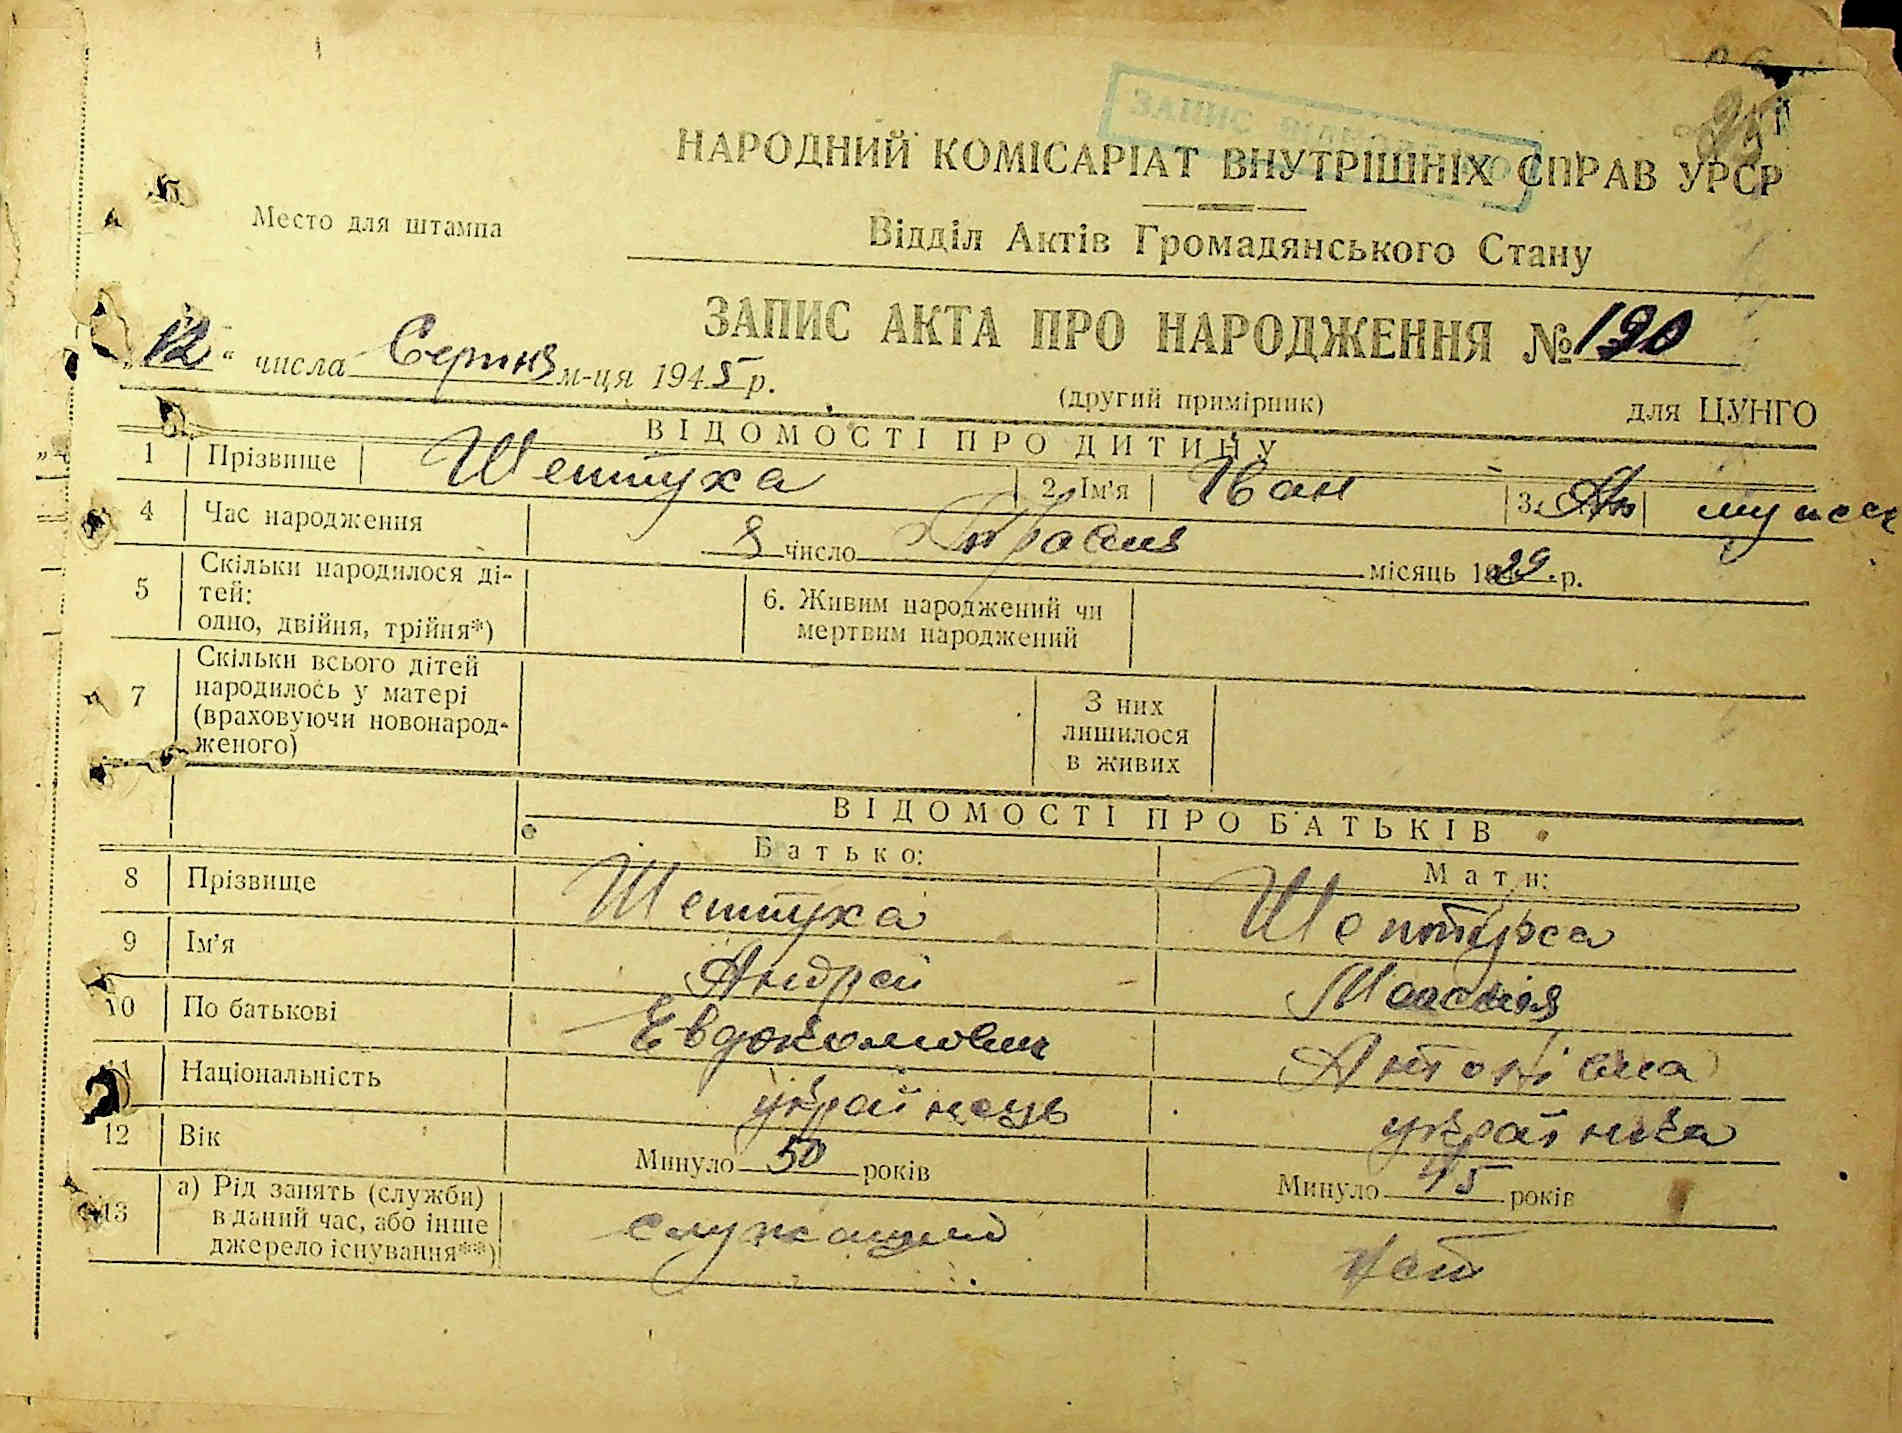 ЗАПИС ВІДНОВЛЕНО
НАРОДНИЙ КОМІСАРІАТ ВНУТРІШНІХ СПРАВ УРСР
Место для штампа
Відділ Актів Громадянського Стану
ЗАПИС АКТА ПРО НАРОДЖЕННЯ № 190
„12“ числа Серпня м-ця 1945 р.
(другий примірник) для ЦУНГО
ВІДОМОСТІ ПРО ДИТИНУ
1 Прізвище Шептуха 2. Ім'я Іван 3.
4 Час народження 8 число Травня місяць 1929 р.
5 Скільки народилося ді-
тей:
одно, двійня, трійня*)
6. Живим народжений чи
мертвим народжений
7 Скільки всього дітей
народилось у матері
(враховуючи новонарод-
женого)
З них
лишилося
в живих
ВІДОМОСТІ ПРО БАТЬКІВ
Батько: Мати:
8 Прізвище Шептуха Шептуха
9 Ім'я Андрей
10 По батькові Евдокимович Антонівна
11 Національність українець українка
12 Вік Минуло 50 років Минуло 45 років
13 а) Рід занять (служби)
в даний час, або інше
джерело існування**)
служащий